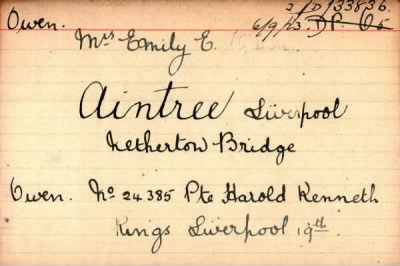 3/D/33836.
Owen. 6/9/23. D.P. O5
Mrs Emily E.
Aintree Liverpool
Netherton Bridge
Owen. No 24385 Pte Harold Kenneth
Kings Liverpool 19th.